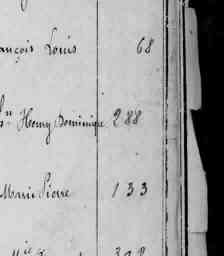 ançois Louis 68
Henry Dominique 288
Marie Pierre 133